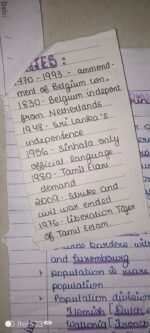 TES :
1970 - 1993 - ammend-
ment of Belgium con.
1830 - Belgium indepent
from Netherlands
1948 - Sri Lanka's
independence
1956 - Sinhala only
official language
1980 - Tamil Elam
demand
2009 - struke and
civil war ended
1976 - Liberation Tiger
of Tamil Eelam
borders with
and Luxembourg
population is
population
Population division
Flemish Dutch
Wallonia French
itel S23